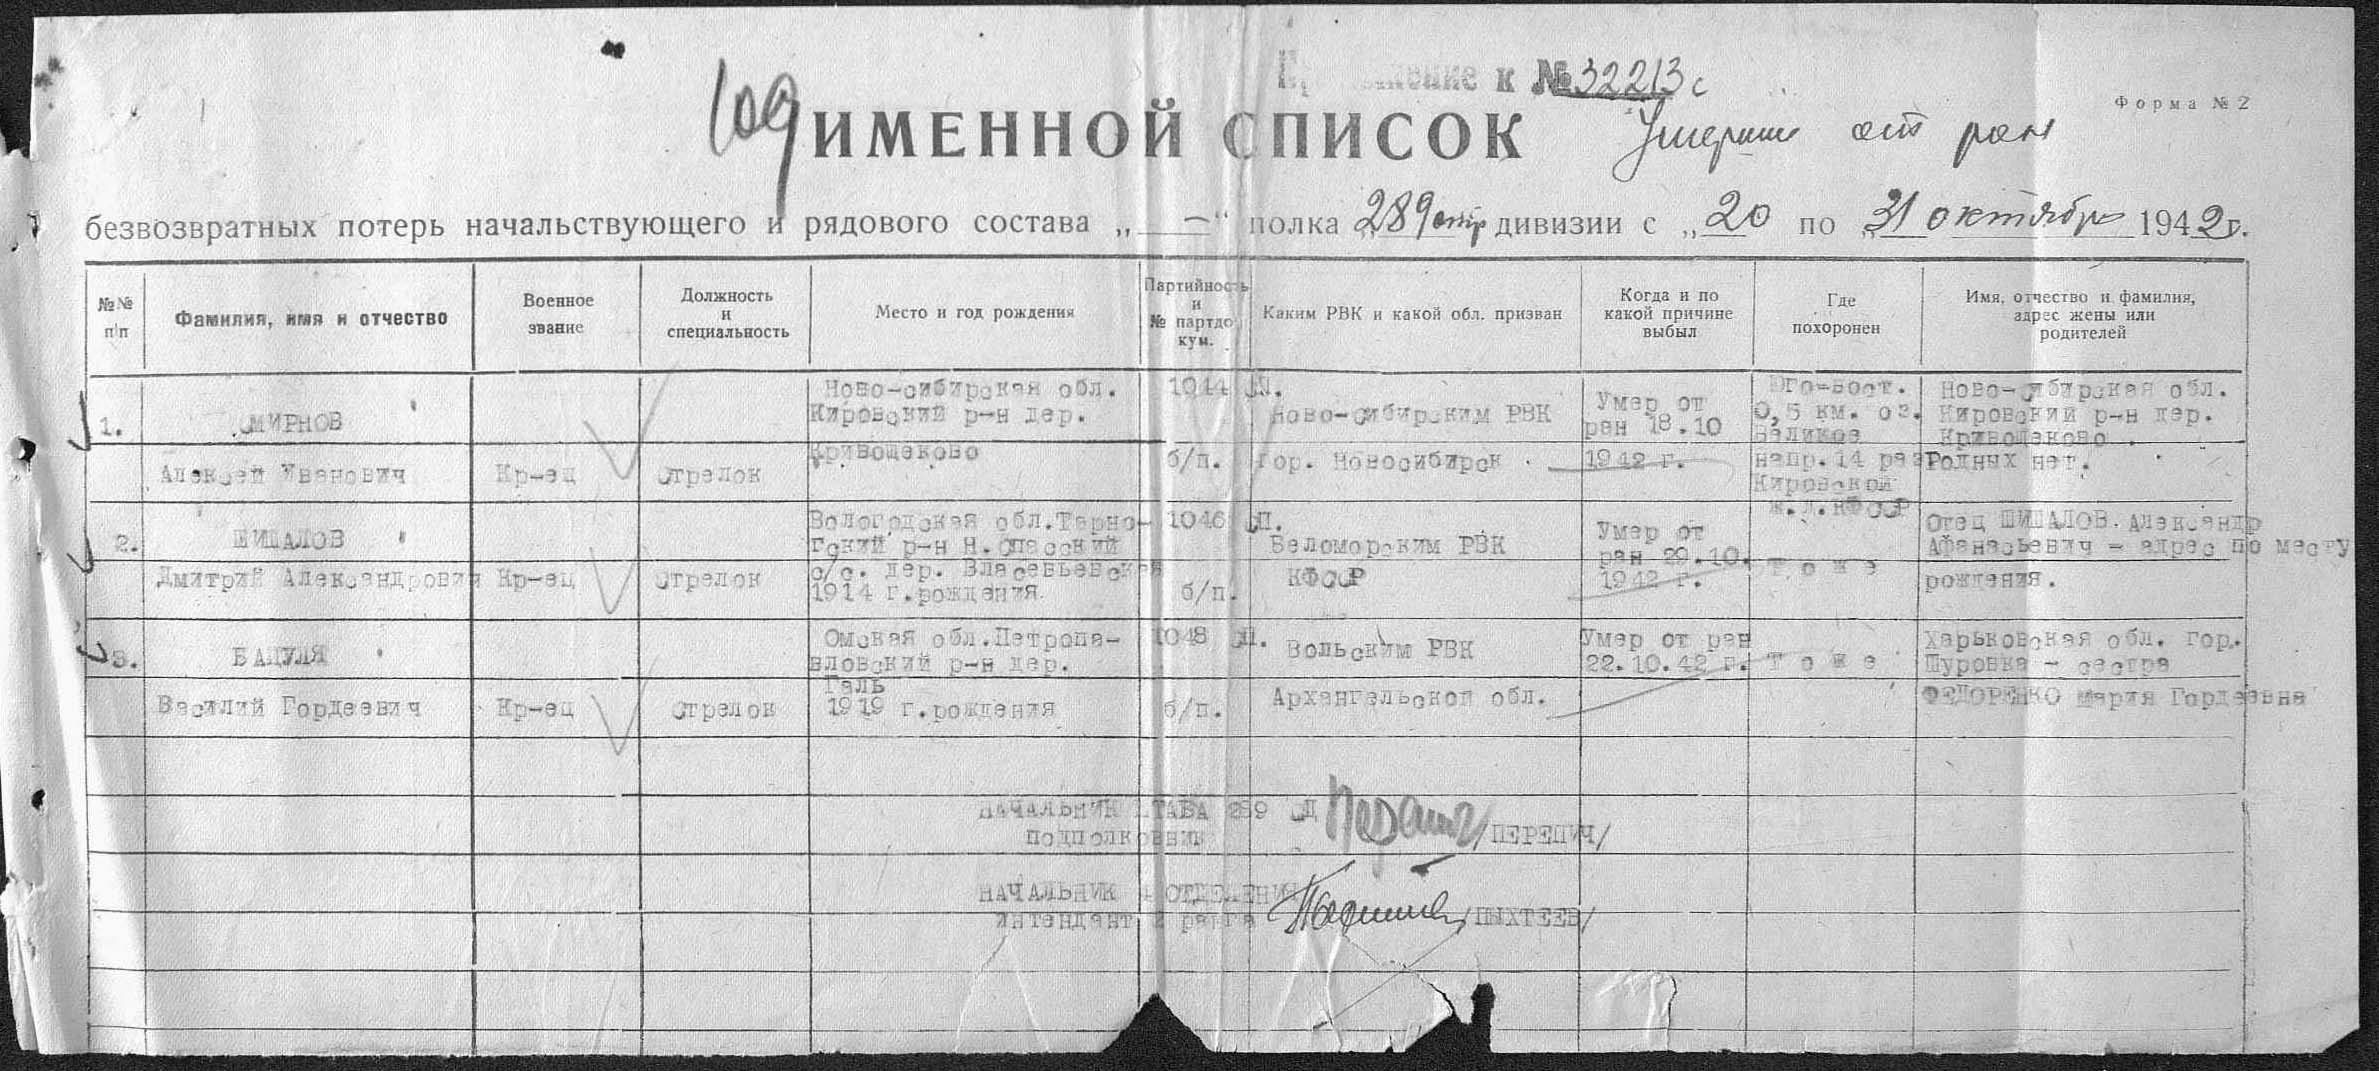 к № 32213с
109 ИМЕННОЙ СПИСОК Умерших от ран
Форма № 2
безвозвратных потерь начальствующего и рядового состава „ — “ полка „289 стр дивизии с „20 по „31 октября 1942г.
№№ п/п
Фамилия, имя и отчество
Военное звание
Должность и специальность
Место и год рождения
Партийность и № партдокум.
Каким РВК и какой обл. призван
Когда и по какой причине выбыл
Где похоронен
Имя, отчество и фамилия, адрес жены или родителей
1.
СМИРНОВ
Алексей Иванович
Кр-ец
Стрелок
Ново-сибирская обл.
Кировский р-н дер.
Кривощеково
1044 СП.
б/п.
Ново-сибирским РВК
гор. Новосибирск.
Умер от
ран 18.10
1942 г.
Юго-вост.
0,5 км. оз.
Великое
напр. 14 раз
Кировской
ж.д. КФССР
Ново-сибирская обл.
Кировский р-н дер.
Кривощеково.
Родных нет.
2.
ШИШАЛОВ
Дмитрий Александрович
Кр-ец
Стрелок
Вологодская обл. Тарно-
гский р-н Н. Спасский
с/с. дер. Власьевская
1914 г. рождения
1046 СП.
б/п.
Беломорским РВК
КФССР
Умер от
ран 29.10.
1942 г.
Тоже
Отец ШИШАЛОВ. Александр
Афанасьевич - адрес по месту
рождения.
3.
БАЦУЛЯ
Василий Гордеевич
Кр-ец
Стрелок
Омская обл. Петропа-
вловский р-н дер.
Галь
1919 г. рождения
1048 СП.
б/п.
Вольским РВК
Архангельской обл.
Умер от ран
22.10.42 г.
Тоже
Харьковская обл. гор.
Шуровка - сестра
ФЕДОРЕНКО Мария Гордеевна
НАЧАЛЬНИК ШТАБА 289 СД
ПОДПОЛКОВНИК /ПЕРЕПИЧ/
НАЧАЛЬНИК 4 ОТДЕЛЕНИЯ
интендант ранга /ПЫХТЕЕВ/